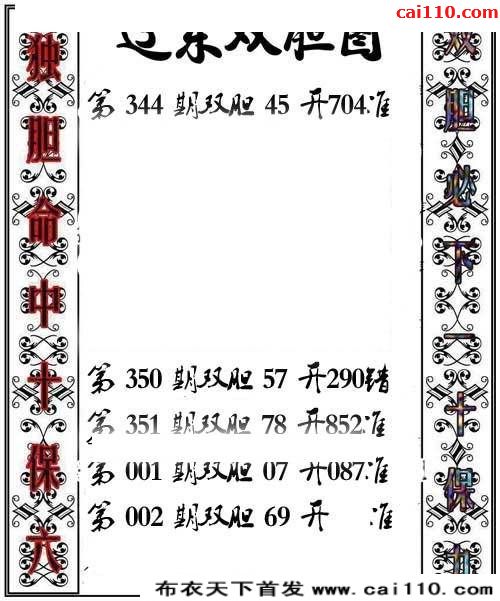 cai110.com
辽东双胆图
第 344 期双胆 45 开704准
第 350 期双胆 57 开290错
第 351 期双胆 78 开852准
第 001 期双胆 07 开087准
第 002 期双胆 69 开 准
独胆命中十保六
双胆必下一十保九
布衣天下首发 www.cai110.com